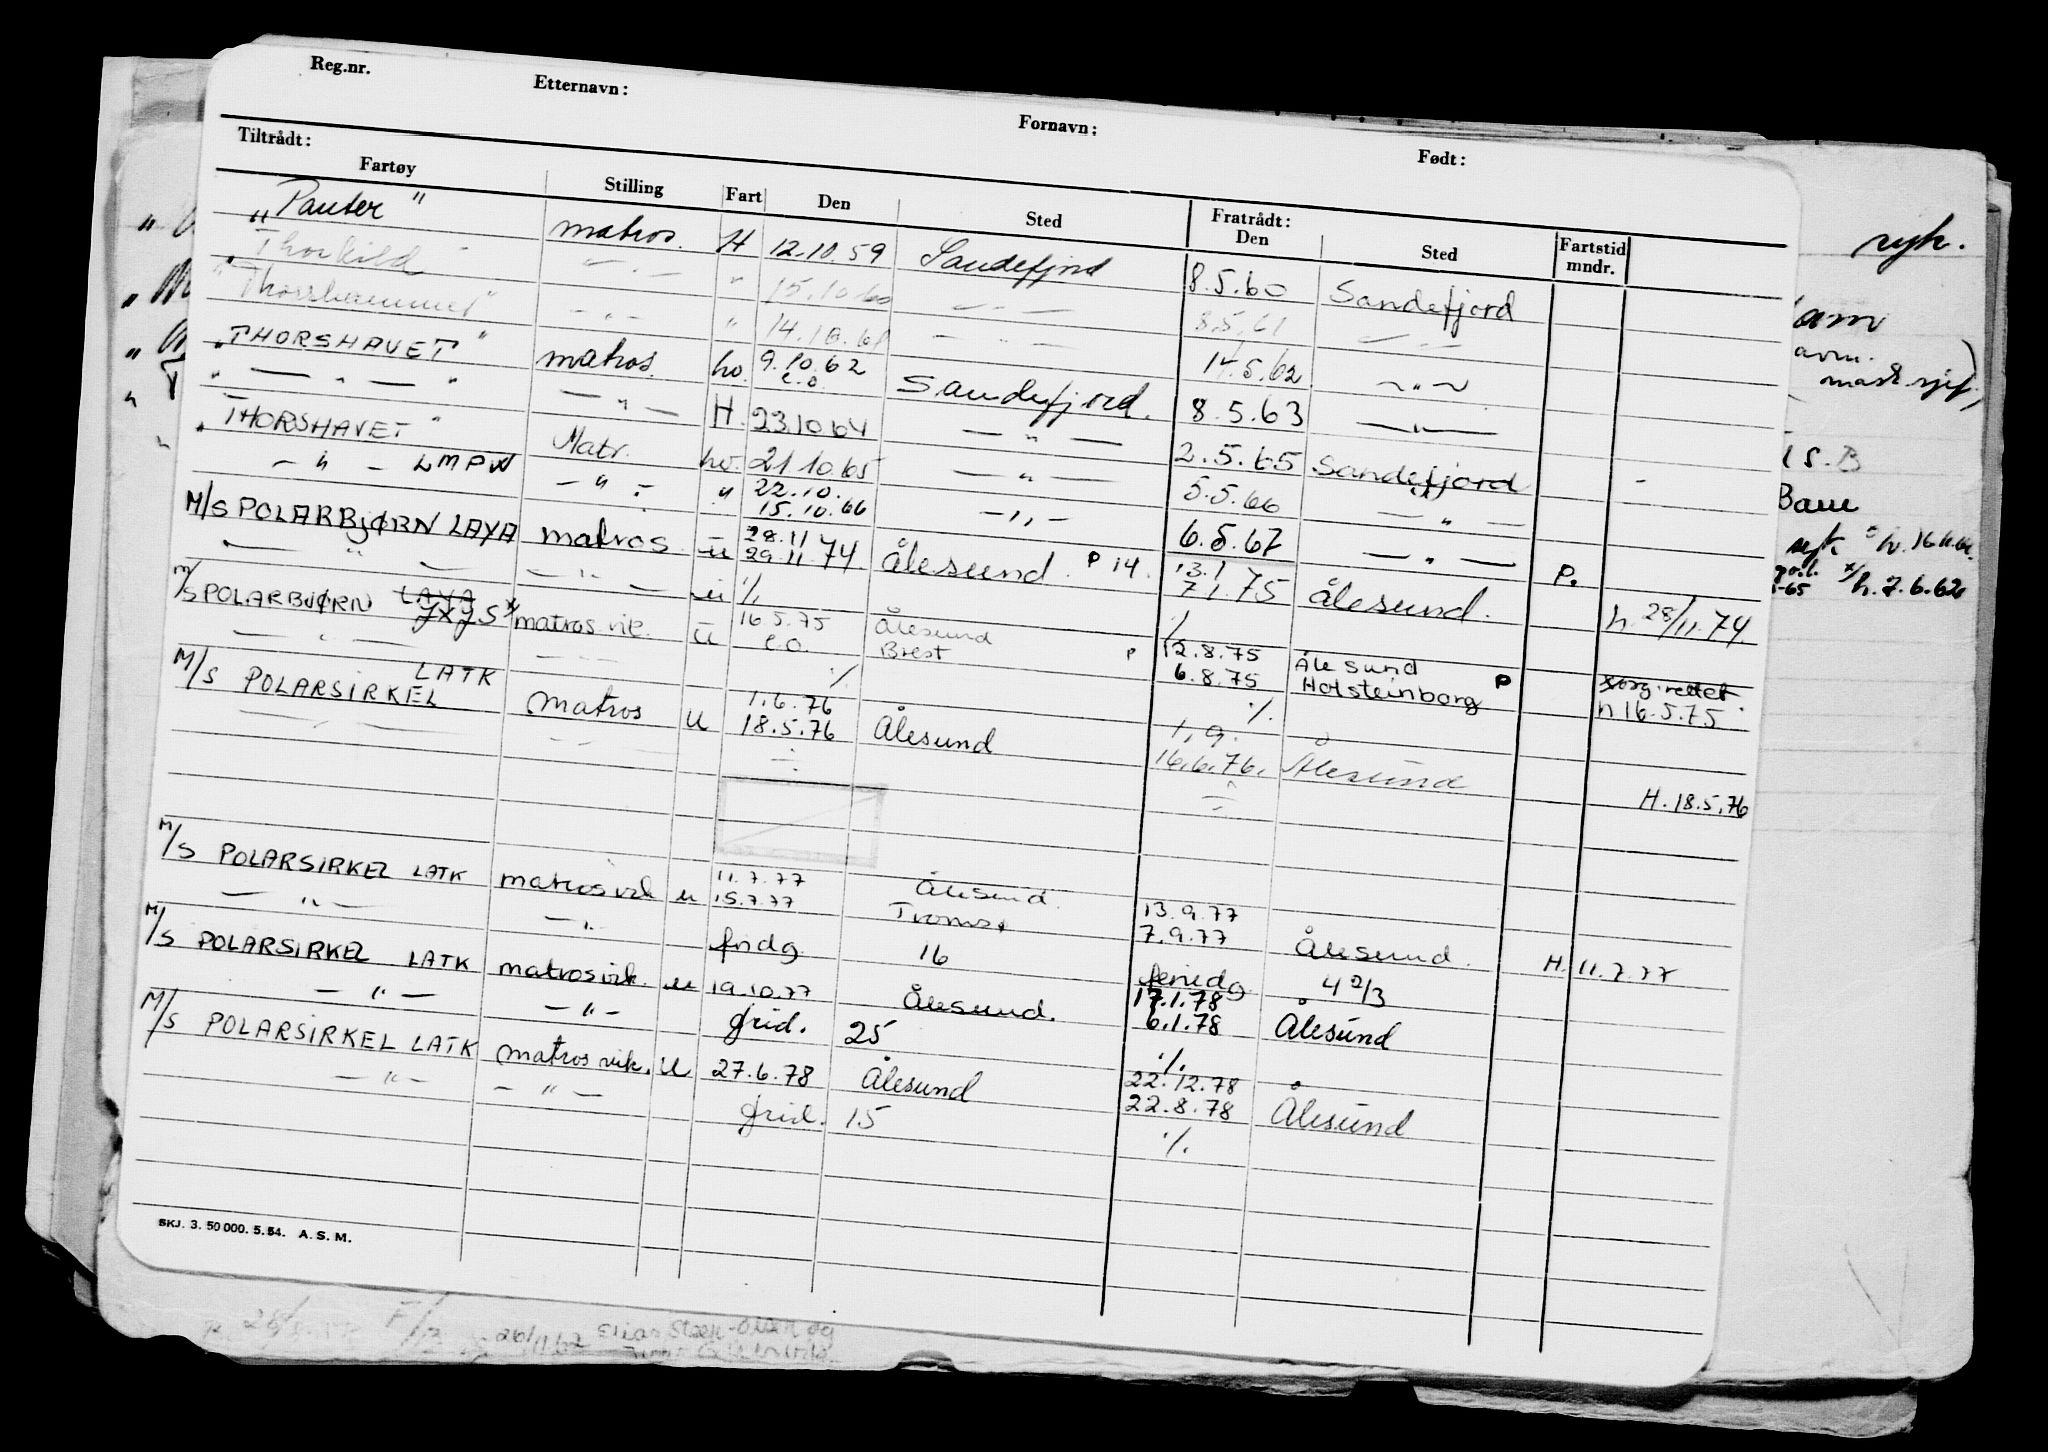 Reg.nr. Etternavn: Fornavn: Født:
Tiltrådt: Fratrådt:
Fartøy Stilling Fart Den Sted Den Sted Fartstid mndr.
„Panter" matros. H 12.10.59 Sandefjord 8.5.60 Sandefjord
„Thorkild" — " — " 15.10.60 — " — 8.5.61 — " —
"Thorshammer" — " — " 14.10.61 — " — 14.5.62 — " —
„THORSHAVET" matros. hv. 9.10.62 Sandefjord. 8.5.63 — " —
" — " — " — " — H. 23.10.64 — " — 2.5.65 Sandefjord
„THORSHAVET" Matr. hv. 21.10.65 — " — 5.5.66 — " —
— " — LMPW — " — " 22.10. 15.10.66 — " — 6.5.67 — " — P.
M/S POLARBJØRN LAYA matros u 28.11 29.11 74 Ålesund. P 14. 13.1 7.1 75 Ålesund. h. 28/11.74
— " — — " — u ./. ./.
M/S POLARBJØRN LAYA JXJS x/ matros vik. u 16.5.75 Ålesund 12.8.75 Ålesund
— " — — " — e.o. Brest P 6.8.75 Holsteinborg P h 16.5.75
./. ./.
M/S POLARSIRKEL LATK matros u 1.6.76 18.5.76 Ålesund 1.9. 16.6.76. Ålesund H. 18.5.76
— " — — " —
M/S POLARSIRKEL LATK matros vik u 11.7.77 15.7.77 Ålesund. Tromsø 13.9.77 7.9.77 Ålesund. H. 11.7.77
— " — — " — fridg 16 feriedg 4 2/3
M/S POLARSIRKEL LATK matros vik. u 19.10.77 Ålesund. 17.1.78 6.1.78 Ålesund
— " — — " — frid. 25 ./.
M/S POLARSIRKEL LATK matros vik. U 27.6.78 Ålesund 22.12.78 22.8.78 Ålesund
— " — — " — frid. 15 ./.
SKJ. 3. 50 000. 5.54. A. S. M.
26/11.62
sejk.
mask.sjef.
I S.B
h. 7.6.62